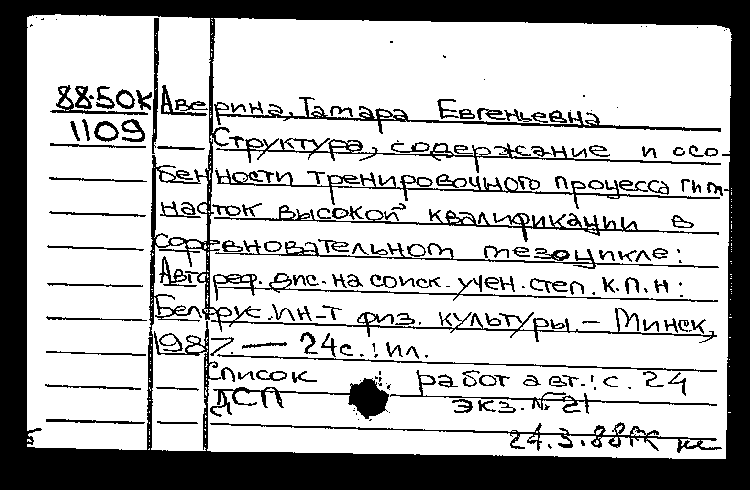 88.50К Аверина, Тамара Евгеньевна
1109 Структура, содержание и осо-
бенности тренировочного процесса гим-
насток высокой квалификации в
соревновательном мезоцикле:
Автореф. дис. на соиск. учен. степ. к.п.н:
Белорус. ин-т физ. культуры. – Минск,
1987. — 24с.: ил.
Список работ авт.: с. 24
ДСП экз. № 21
24.3.88